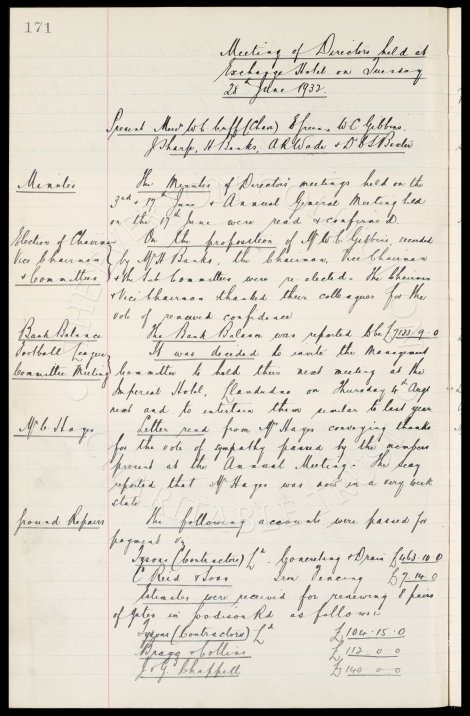 171
Meeting of Directors held at
Exchange Hotel on Tuesday
28th June 1932.
Present Messrs W C Cuff (Chair) E Green, W C Gibbins,
J Sharp, H Banks, A R Wade & Dr C S Baxter
Minutes
The Minutes of Directors meetings held on the
3rd & 17th June & Annual General Meeting held
on the 17th June were read & confirmed.
Election of Chairman
Vice Chairman
& Committees
On the proposition of Mr W C Gibbins, seconded
by Mr H Banks, the Chairman, Vice Chairman
& the Sub Committees were re-elected. The Chairman
& Vice Chairman thanked their colleagues for the
vote of renewed confidence
Bank Balance
The Bank Balance was reported to be £7133.9.0
Football League
Committee Meeting
It was decided to invite the Managment
Committee to hold their next meeting at the
Imperial Hotel, Llandudno on Thursday 4th Augt
next and to entertain them similar to last year
Mr C Hayes
Letter read from Mr Hayes conveying thanks
for the vote of sympathy passed by the members
present at the Annual Meeting. The Secy
reported that Mr Hayes was now in a very weak
state
Ground Repairs
The following accounts were passed for
payment viz
Tysons (Contractors) Ld - Concreting & Drain £463.10.0
C Reid & Sons Iron Fencing £7.14.0
Estimates were received for renewing 8 pairs
of Gates in Goodison Rd as follows:
Tysons (Contractors) Ld £104.15.0
Bragg & Collins £112.0.0
J & G Chappell £140.0.0